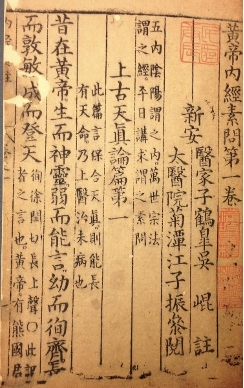 黃帝內經素問第一卷
新安 醫家子鶴皐吳 崐 註
太醫院菊潭江子振參閱
五內陰陽謂之內萬世宗法
謂之經平日講求謂之素問
上古天真論篇第一
此篇言保合天真則能長
有天命乃上醫治未病也
昔在黃帝生而神靈弱而能言幼而徇齊長
而敦敏成而登天
徇徐閏切長上聲〇此記
者之言也黃帝有熊國君